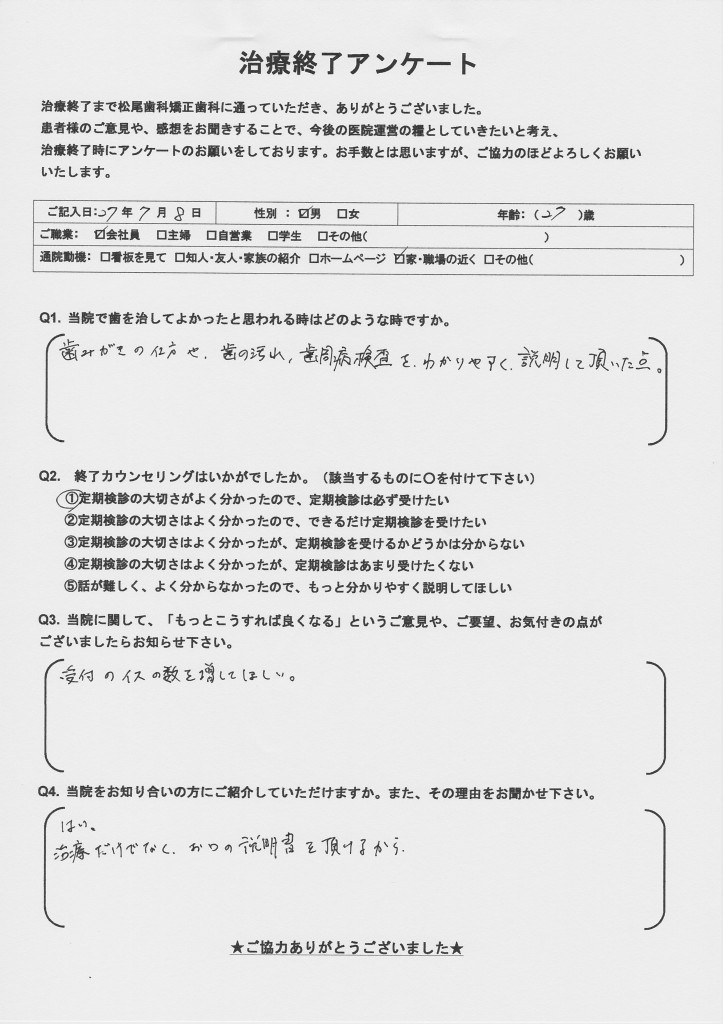 治療終了アンケート
治療終了まで松尾歯科矯正歯科に通っていただき、ありがとうございました。
患者様のご意見や、感想をお聞きすることで、今後の医院運営の糧としていきたいと考え、
治療終了時にアンケートのお願いをしております。お手数とは思いますが、ご協力のほどよろしくお願い
いたします。
ご記入日:27年7月8日 性別 : ☑男 □女 年齢:(27)歳
ご職業: ☑会社員 □主婦 □自営業 □学生 □その他( )
通院動機: □看板を見て □知人・友人・家族の紹介 □ホームページ ☑家・職場の近く □その他( )
Q1. 当院で歯を治してよかったと思われる時はどのような時ですか。
歯みがきの仕方や、歯の汚れ、歯周病検査を、わかりやすく、説明して頂いた点。
Q2. 終了カウンセリングはいかがでしたか。(該当するものに〇を付けて下さい)
①定期検診の大切さがよく分かったので、定期検診は必ず受けたい
②定期検診の大切さはよく分かったので、できるだけ定期検診を受けたい
③定期検診の大切さはよく分かったが、定期検診を受けるかどうかは分からない
④定期検診の大切さはよく分かったが、定期検診はあまり受けたくない
⑤話が難しく、よく分からなかったので、もっと分かりやすく説明してほしい
Q3. 当院に関して、「もっとこうすれば良くなる」というご意見や、ご要望、お気付きの点が
ございましたらお知らせ下さい。
受付のイスの数を増してほしい。
Q4. 当院をお知り合いの方にご紹介していただけますか。また、その理由をお聞かせ下さい。
はい。
治療だけでなく、お口の説明書を頂けるから.
★ご協力ありがとうございました★